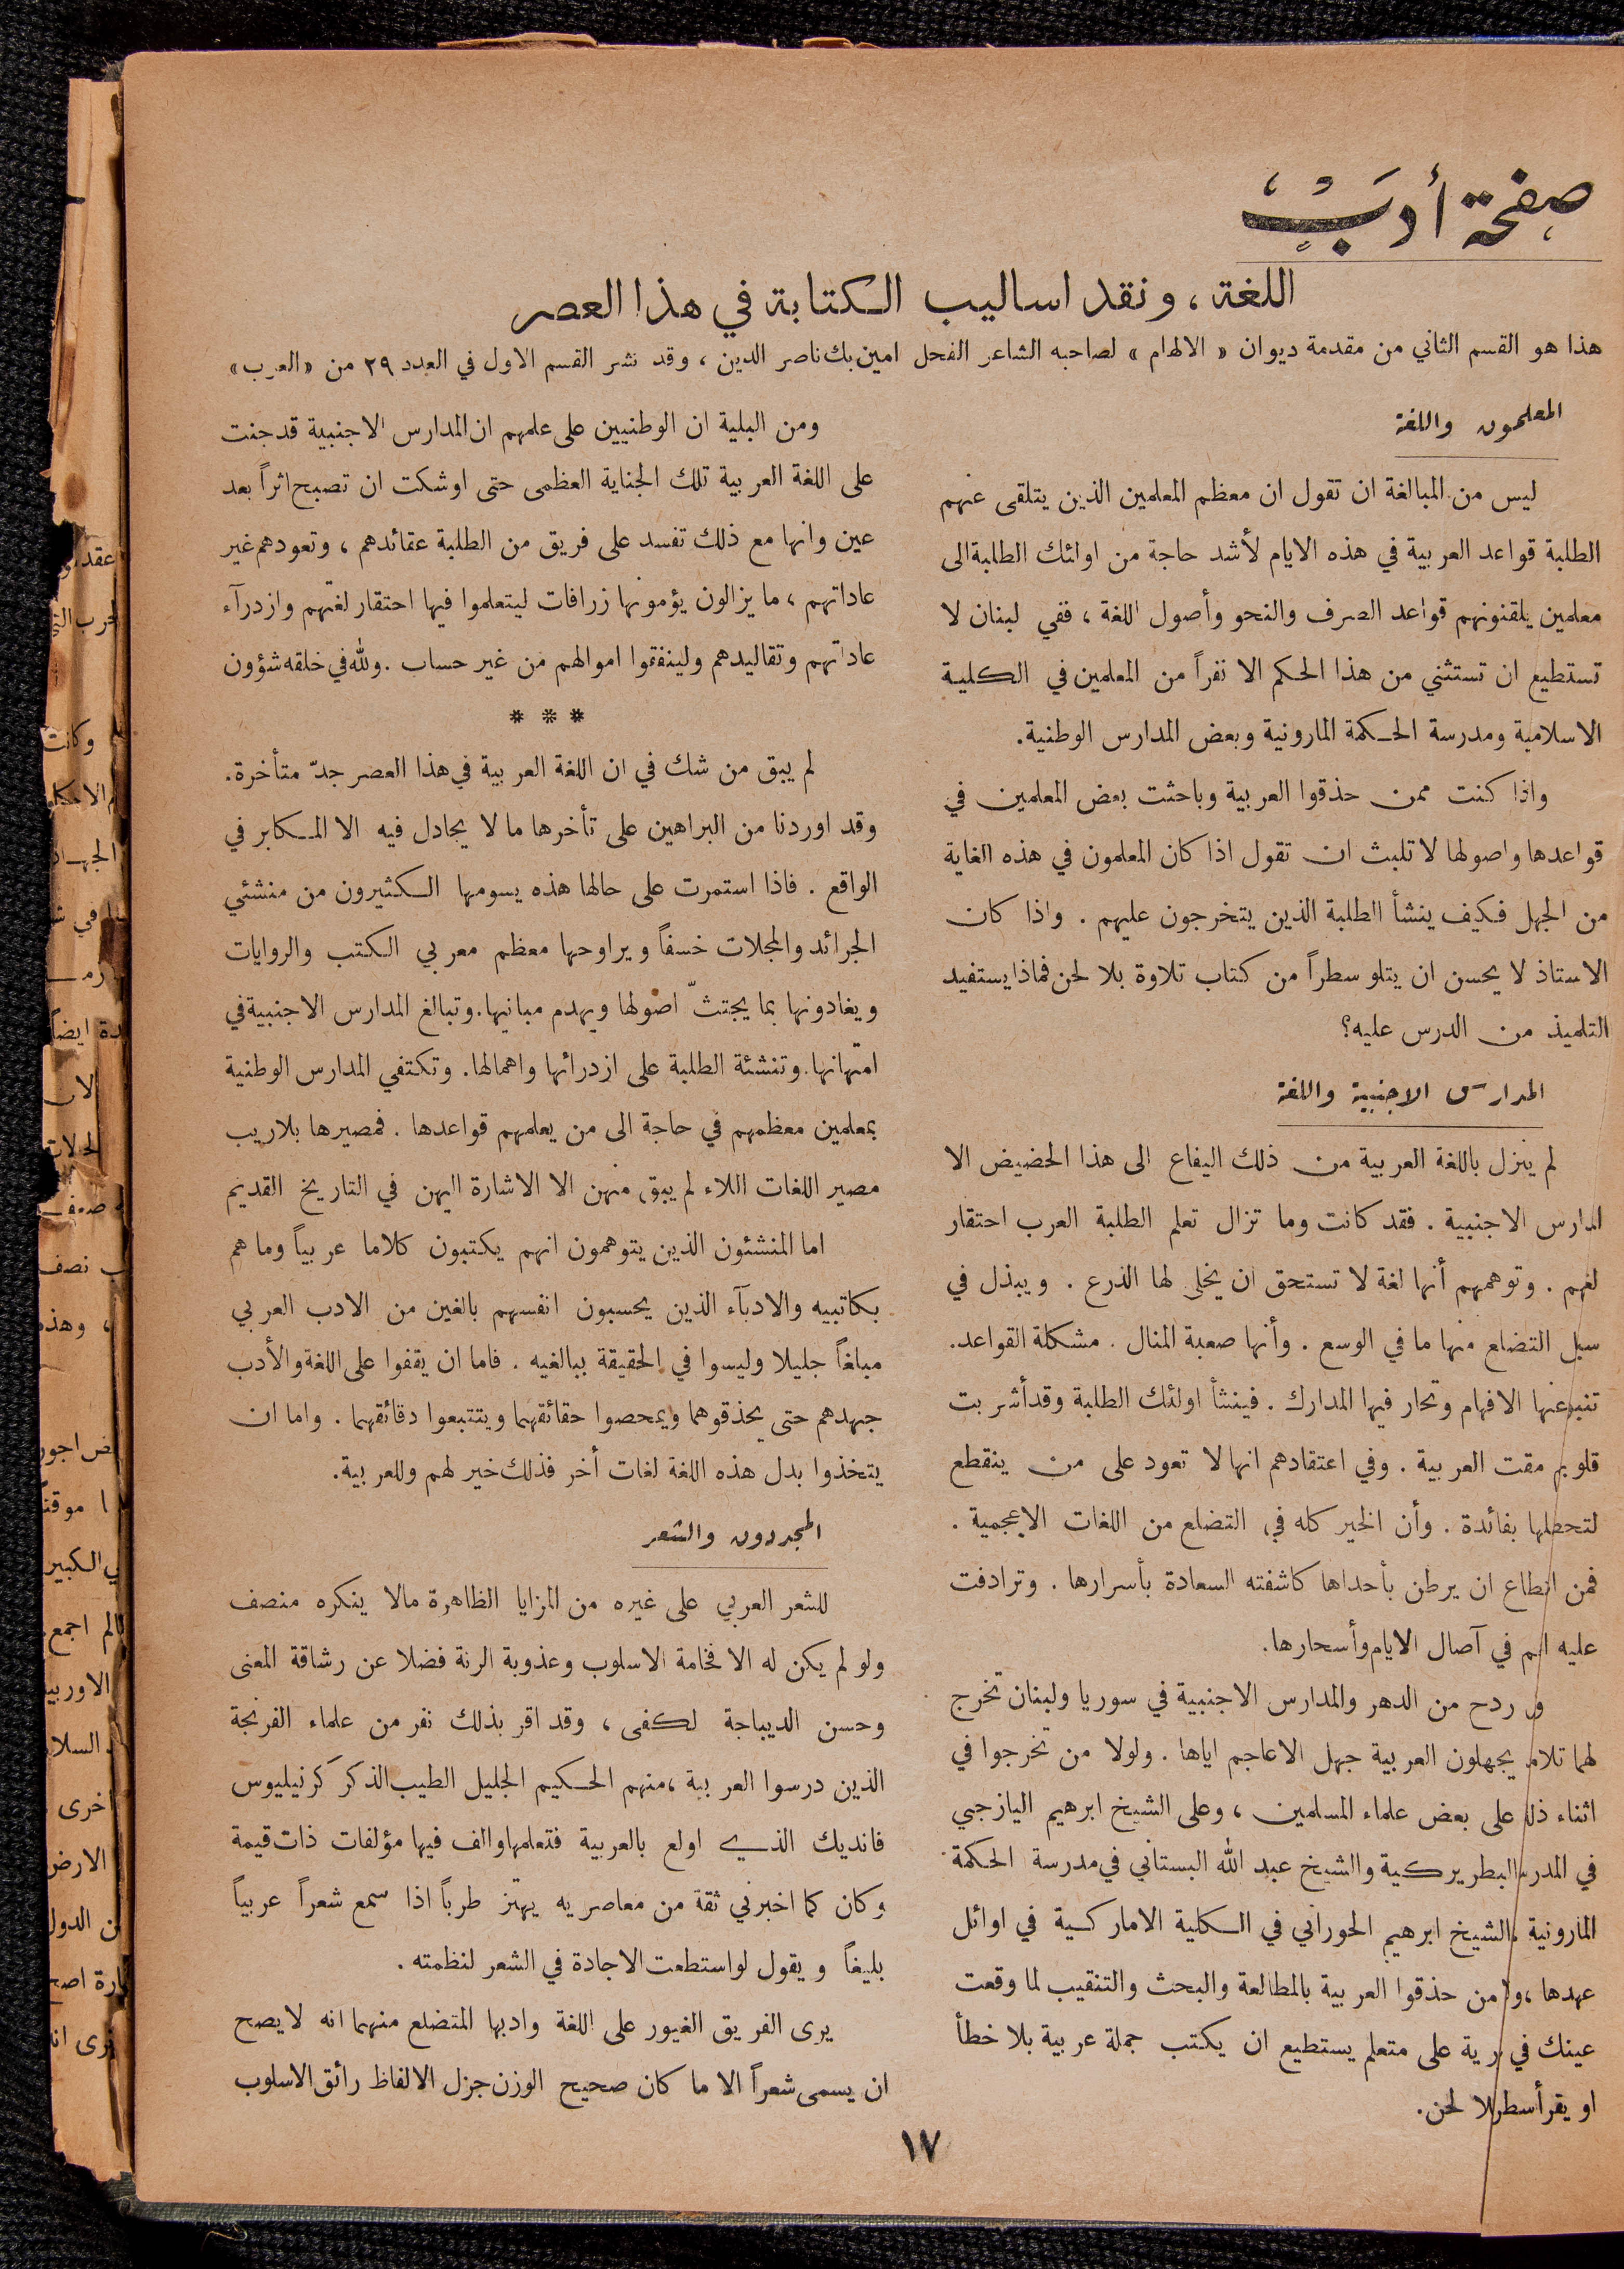 صفحة أدب
اللغة ، ونقد اساليب الكتابة في هذا العصر
هذا هو القسم الثاني من مقدمة ديوان « الالهام » لصاحبه الشاعر الفحل امين بك ناصر الدين ، وقد نشر القسم الاول في العدد ٢٩ من «العرب»
المعلمون واللغة
ليس من المبالغة ان تقول ان معظم المعلمين الذين يتلقى عنهم
الطلبة قواعد العربية في هذه الايام لأشد حاجة من اولئك الطلبة الى
معلمين يلقنونهم قواعد الصرف والنحو وأصول اللغة ، ففي لبنان لا
تستطيع ان تستثني من هذا الحكم الا نفراً من المعلمين في الكلية
الاسلامية ومدرسة الحكمة المارونية وبعض المدارس الوطنية.
واذا كنت ممن حذقوا العربية وباحثت بعض المعلمين في
قواعدها واصولها لا تلبث ان تقول اذا كان المعلمون في هذه الغاية
من الجهل فكيف ينشأ الطلبة الذين يتخرجون عليهم . واذا كان
الاستاذ لا يحسن ان يتلو سطراً من كتاب تلاوة بلا لحن فماذا يستفيد
التلميذ من الدرس عليه؟
المدارس الاجنبية واللغة
لم ينزل باللغة العربية من ذلك اليفاع الى هذا الحضيض الا
المدارس الاجنبية . فقد كانت وما تزال تعلم الطلبة العرب احتقار
لغتهم . وتوهمهم أنها لغة لا تستحق ان يخلى لها الذرع . ويبذل في
سبل التضلع منها ما في الوسع . وأنها صعبة المنال . مشكلة القواعد.
تنبو عنها الافهام وتحار فيها المدارك . فينشأ اولئك الطلبة وقد أشربت
قلوبهم مقت العربية . وفي اعتقادهم انها لا تعود على من ينقطع
لتحصيلها بفائدة . وأن الخير كله في التضلع من اللغات الاعجمية .
فمن استطاع ان يرطن بأحداها كاشفته السعادة بأسرارها . وترادفت
عليه في آصال الايام وأسحارها.
ردح من الدهر والمدارس الاجنبية في سوريا ولبنان تخرج
لهما يجهلون العربية جهل الاعاجم اياها . ولولا من تخرجوا في
اثناء ذلك على بعض علماء المسلمين ، وعلى الشيخ ابرهيم اليازجي
في المدرسة البطريركية والشيخ عبد الله البستاني في مدرسة الحكمة
المارونية والشيخ ابرهيم الحوراني في الكلية الاماركسية في اوائل
عهدها ، من حذقوا العربية بالمطالعة والبحث والتنقيب لما وقعت
عينك في على متعلم يستطيع ان يكتب جملة عربية بلا خطأ
او يقرأ سطراً بلا لحن.
ومن البلية ان الوطنيين على علمهم ان المدارس الاجنبية قد جنت
على اللغة العربية تلك الجناية العظمى حتى اوشكت ان تصبح اثراً بعد
عين وانها مع ذلك تفسد على فريق من الطلبة عقائدهم ، وتعودهم غير
عاداتهم ، ما يزالون يؤمونها زرافات ليتعلموا فيها احتقار لغتهم وازدرآء
عاداتهم وتقاليدهم ولينفقوا اموالهم من غير حساب . ولله في خلقه شؤون
* * *
لم يبق من شك في ان اللغة العربية في هذا العصر جدّ متأخرة.
وقد اوردنا من البراهين على تأخرها ما لا يجادل فيه الا المكابر في
الواقع . فاذا استمرت على حالها هذه يسومها الكثيرون من منشئي
الجرائد والمجلات خسفاً ويراوحها معظم معربي الكتب والروايات
ويغادونها بما يجتثّ اصولها ويهدم مبانيها. وتبالغ المدارس الاجنبية في
امتهانها. وتنشئة الطلبة على ازدرائها واهمالها. وتكتفي المدارس الوطنية
بمعلمين معظمهم في حاجة الى من يعلمهم قواعدها . فمصيرها بلا ريب
مصير اللغات اللاء لم يبق منهن الا الاشارة اليهن في التاريخ القديم
اما المنشئون الذين يتوهمون انهم يكتبون كلاما عربياً وما هم
بكاتبيه والادبآء الذين يحسبون انفسهم بالغين من الادب العربي
مبلغاً جليلا وليسوا في الحقيقة ببالغيه . فاما ان يقفوا على اللغة والأدب
جهدهم حتى يحذقوهما ويمحصوا حقائقهما ويتتبعوا دقائقهما . واما ان
يتخذوا بدل هذه اللغة لغات أخر فذلك خير لهم وللعربية.
المجددون والشعر
للشعر العربي على غيره من المزايا الظاهرة مالا ينكره منصف
ولو لم يكن له الا فخامة الاسلوب وعذوبة الرنة فضلا عن رشاقة المعنى
وحسن الديباجة لكفى ، وقد اقر بذلك نفر من علماء الفرنجة
الذين درسوا العربية ، منهم الحكيم الجليل الطيب الذكر كرنيليوس
فانديك الذي اولع بالعربية فتعلمها والف فيها مؤلفات ذات قيمة
وكان كما اخبرني ثقة من معاصريه يهتز طرباً اذا سمع شعراً عربياً
بليغاً ويقول لو استطعت الاجادة في الشعر لنظمته .
يرى الفريق الغيور على اللغة وادبها المتضلع منهما انه لا يصح
ان يسمى شعراً الا ما كان صحيح الوزن جزل الالفاظ رائق الاسلوب
١٧